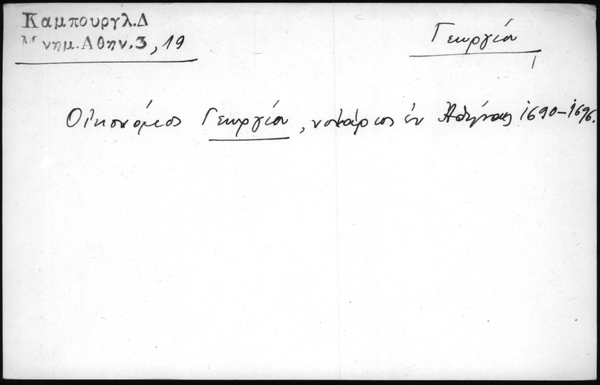 Καμπουργλ.Δ
Μνημ.Αθην.3,19
Γεωργίου
Οἰκονόμος Γεωργίου, νοτάριος ἐν Ἀθήναις 1690-1696.